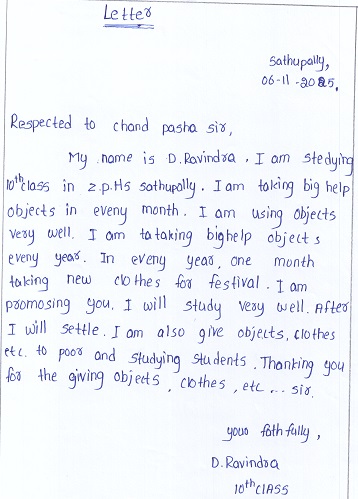 Letter
Sathupally,
06-11-2025.
Respected to chand pasha sir,
My name is D.Ravindra. I am stedying
10th class in z.p.Hs sathupally. I am taking big help
objects in eveny month. I am using objects
very well. I am tataking bighelp objects
eveny year. In eveny year, one month
taking new clothes for festival. I am
promosing you. I will study very well. After
I will settle. I am also give objects, clothes
etc. to poor and studying students. Thanking you
for the giving objects, clothes, etc... sir.
your fath fully,
D. Ravindra
10th class